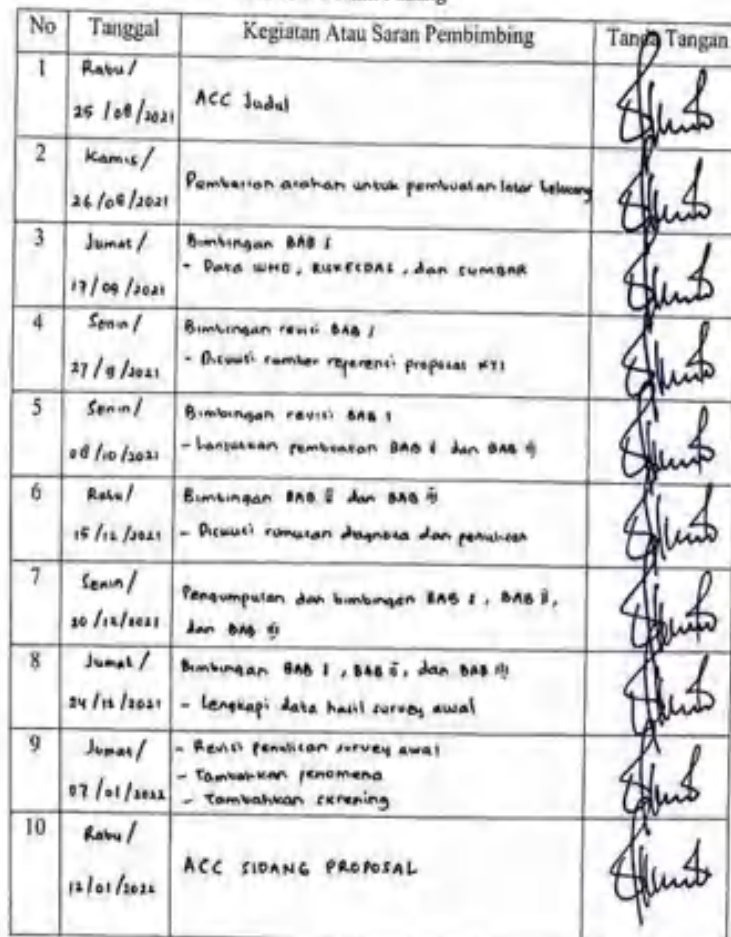 No Tanggal Kegiatan Atau Saran Pembimbing Tanda Tangan
1 Rabu/
25/08/2021 ACC Judul
2 Kamis/
26/08/2021 Pemberian arahan untuk pembuatan latar belakang
3 Jumat/ Bimbingan BAB I
17/09/2021 - Data WHO, RISKESDAS, dan SUMBAR
4 Senin/ Bimbingan revisi BAB I
27/9/2021 - Diskusi sumber referensi proposal KTI
5 Senin/ Bimbingan revisi BAB I
08/10/2021 - Lanjutkan pembuatan BAB II dan BAB III
6 Rabu/ Bimbingan BAB II dan BAB III
15/12/2021 - Diskusi rumusan diagnosa dan penulisan
7 Senin/ Pengumpulan dan bimbingan BAB I, BAB II,
20/12/2021 dan BAB III
8 Jumat/ Bimbingan BAB I, BAB II, dan BAB III
24/12/2021 - Lengkapi data hasil survey awal
9 Jumat/ - Revisi penulisan survey awal
07/01/2022 - Tambahkan fenomena
- Tambahkan skrening
10 Rabu/
12/01/2022 ACC SIDANG PROPOSAL